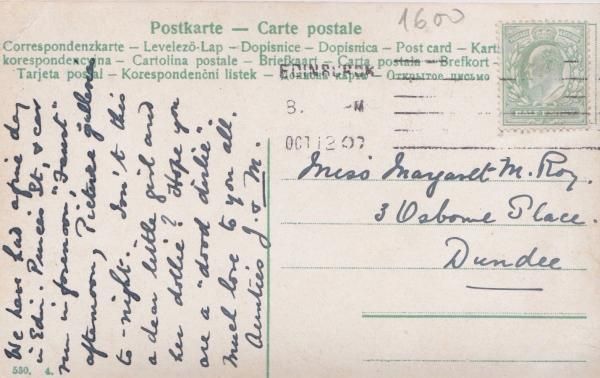 1600
Postkarte — Carte postale
Correspondenzkarte — Levelező-Lap — Dopisnice — Dopisnica — Post card — Kart
korespondencyjna — Cartolina postale — Briefkaart — Carta postala — Brefkort —
Tarjeta postal — Korespondenční listek — — Открытое письмо
EDINBURGH
8. -M
OCT 12 07
Miss Margaret M. Roy.
3 Osborne Place.
Dundee
We have had a fine day
in Edin. Princes St, & car
run in forenoon, "Faust"
afternoon, Picture galleries
to-night. Isn't this
a dear little girl and
her dollie? Hope you
are a "dood dirlie".
Much love to you all.
Aunties J. & M.
530. 4.